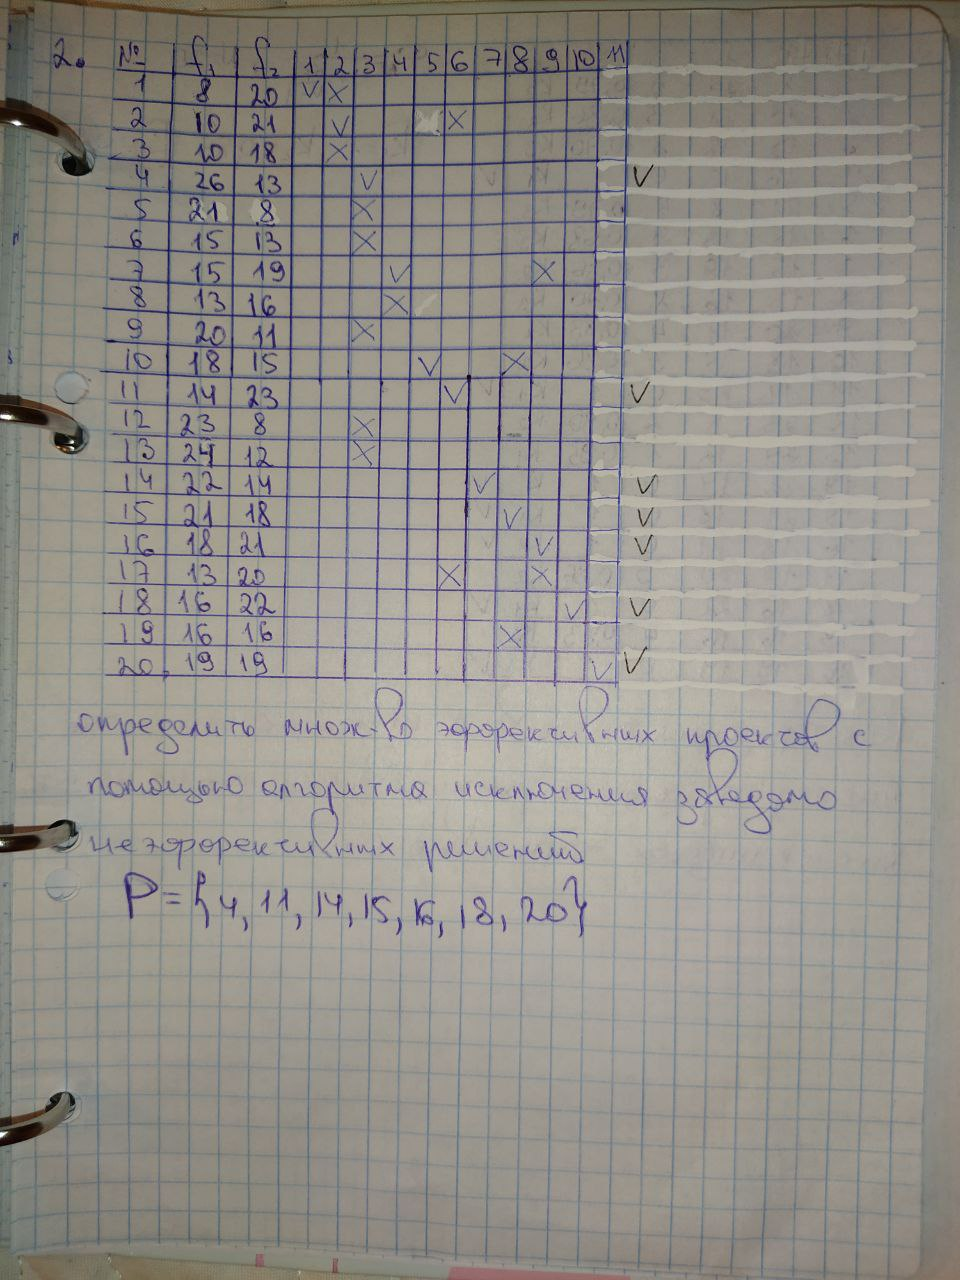 2. № f₁ f₂ 1 2 3 4 5 6 7 8 9 10 11
1 8 20 V X
2 10 21 V X
3 10 18 X
4 26 13 V V
5 21 8 X
6 15 13 X
7 15 19 V X
8 13 16 X
9 20 11 X
10 18 15 V X
11 14 23 V V
12 23 8 X
13 24 12 X
14 22 14 V V
15 21 18 V V
16 18 21 V V
17 13 20 X X
18 16 22 V V
19 16 16 X
20 19 19 V V
определить множ-во эффективных проектов с
помощью алгоритма исключения заведомо
неэффективных решений
P = {4, 11, 14, 15, 16, 18, 20}